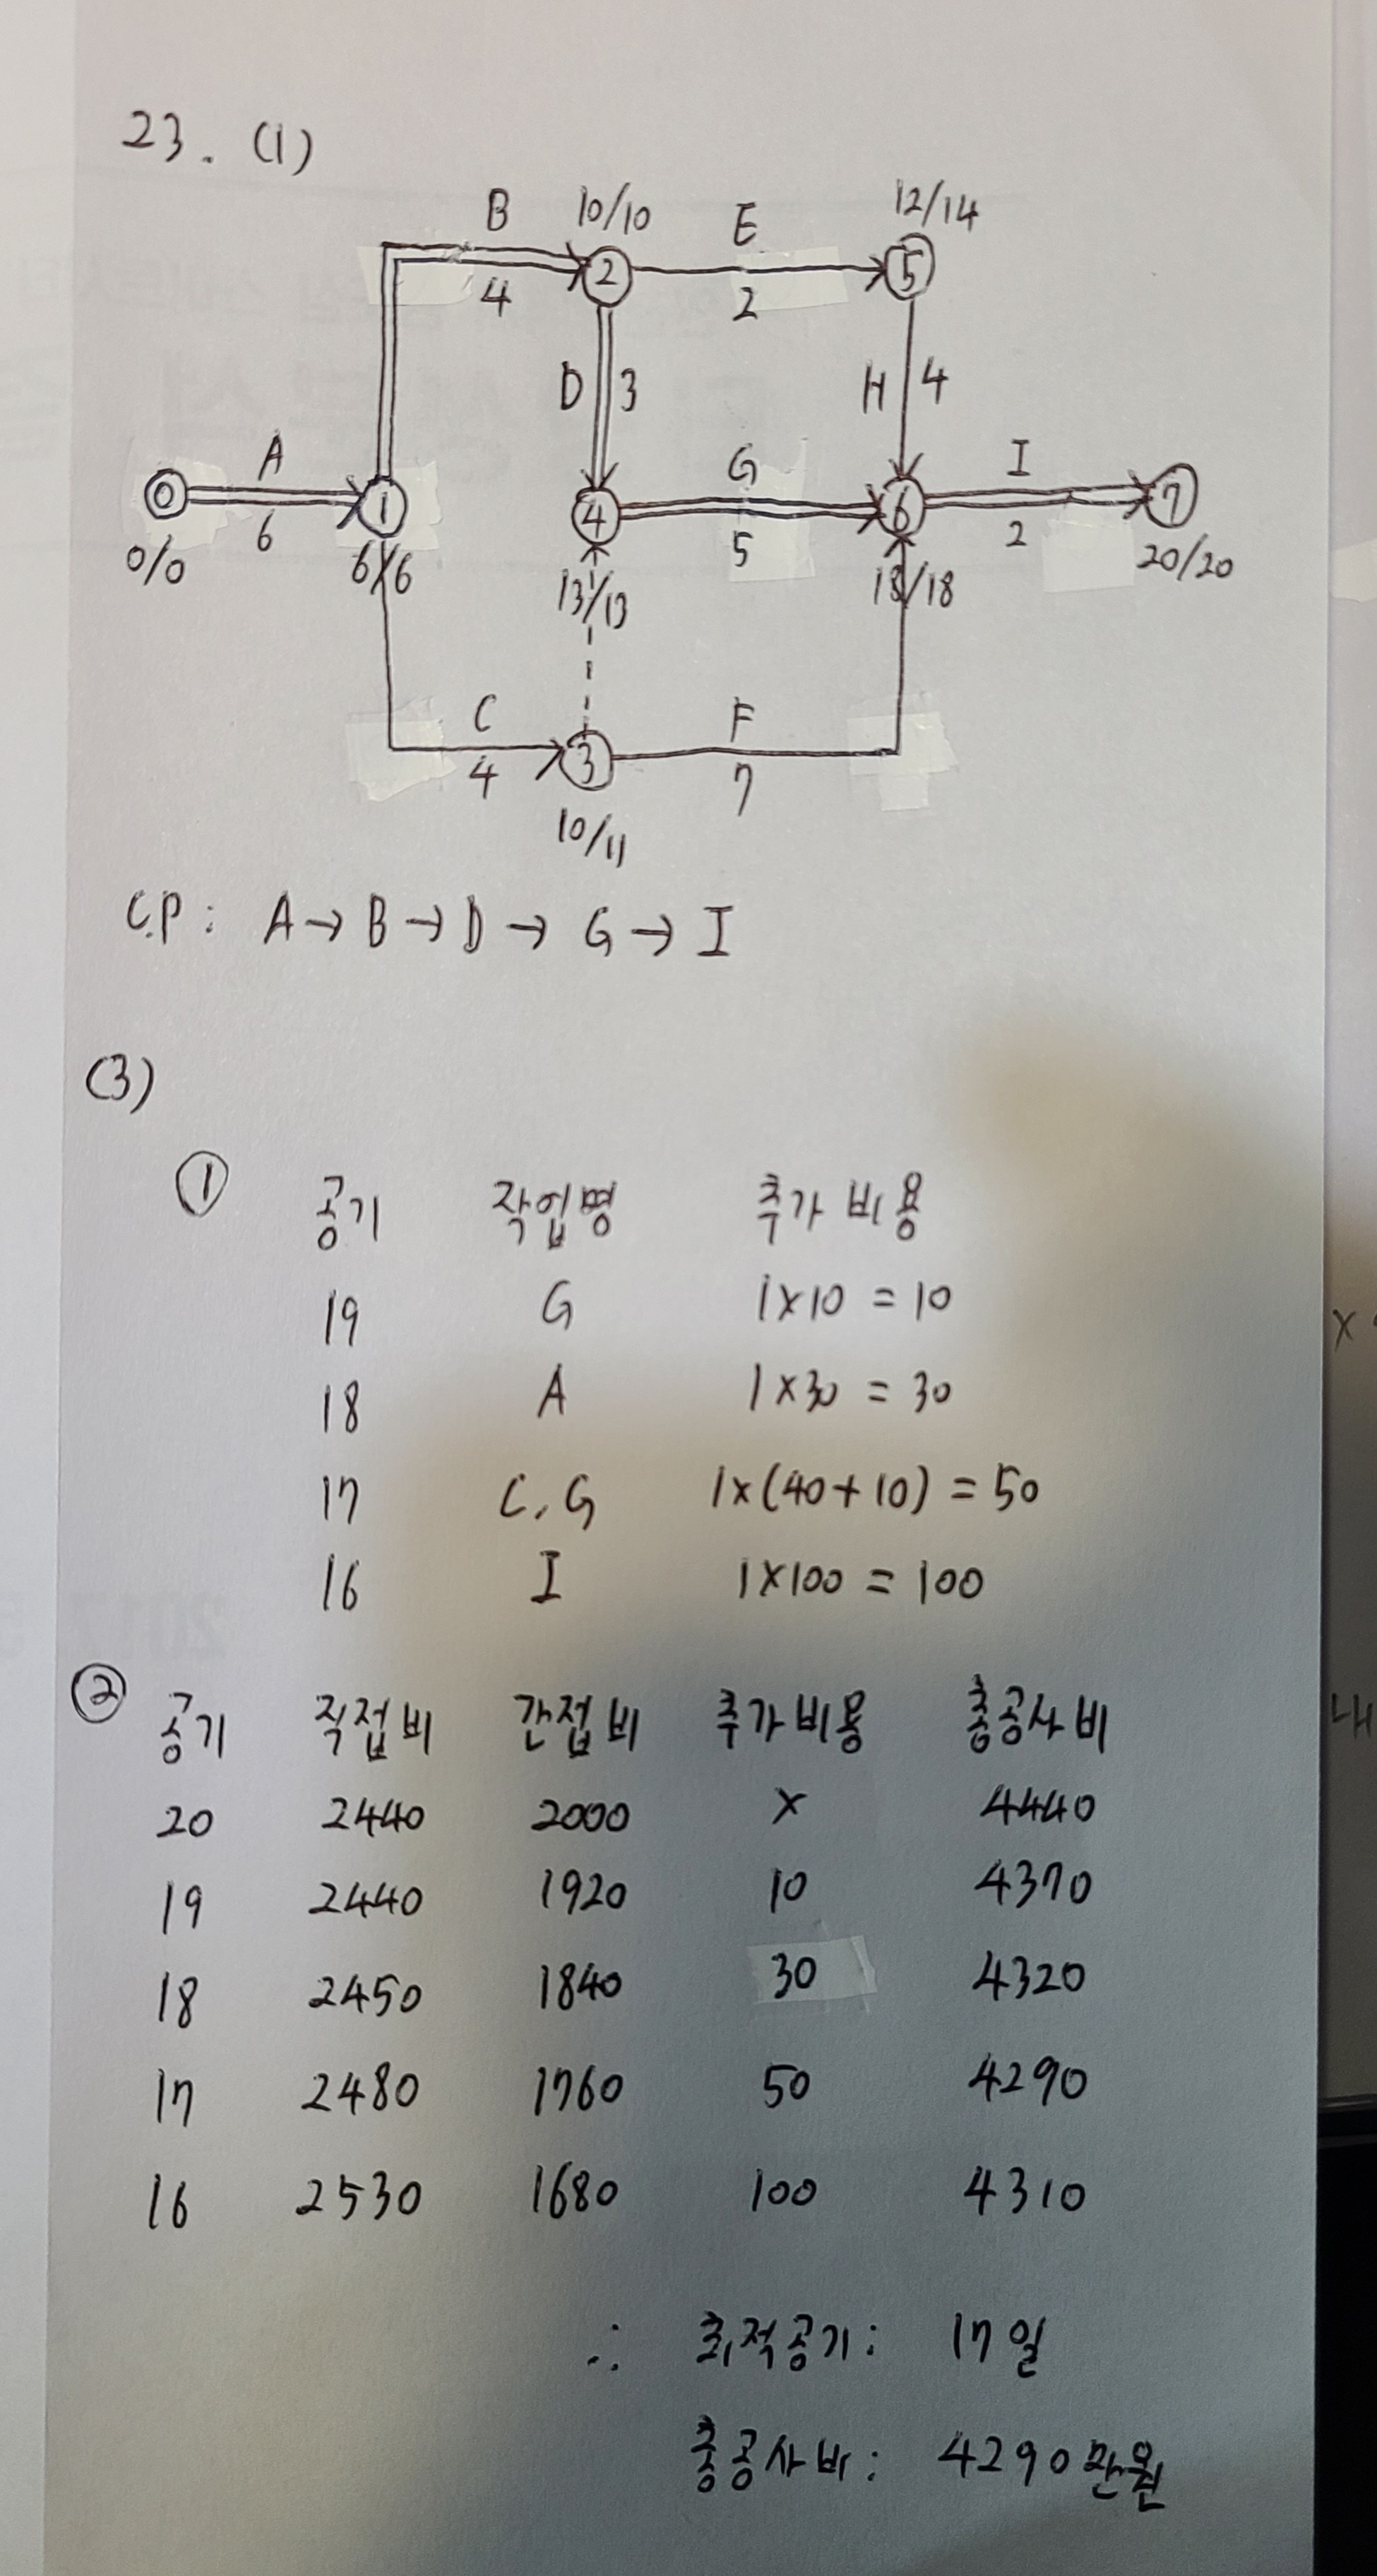 23. (1)
B 10/10 E 12/14
4 ② 2 ⑤
D 3 H 4
A G I
⓪ ① ④ ⑥ ⑦
6 5 2
0/0 6/6 13/13 18/18 20/20
C F
4 ③ 7
10/11
C.P: A→B→D→G→I
(3)
① 공기 작업명 추가 비용
19 G 1×10 = 10
18 A 1×30 = 30
17 C, G 1×(40+10) = 50
16 I 1×100 = 100
② 공기 직접비 간접비 추가비용 총공사비
20 2440 2000 × 4440
19 2440 1920 10 4370
18 2450 1840 30 4320
17 2480 1760 50 4290
16 2530 1680 100 4310
∴ 최적공기: 17일
총공사비: 4290만원